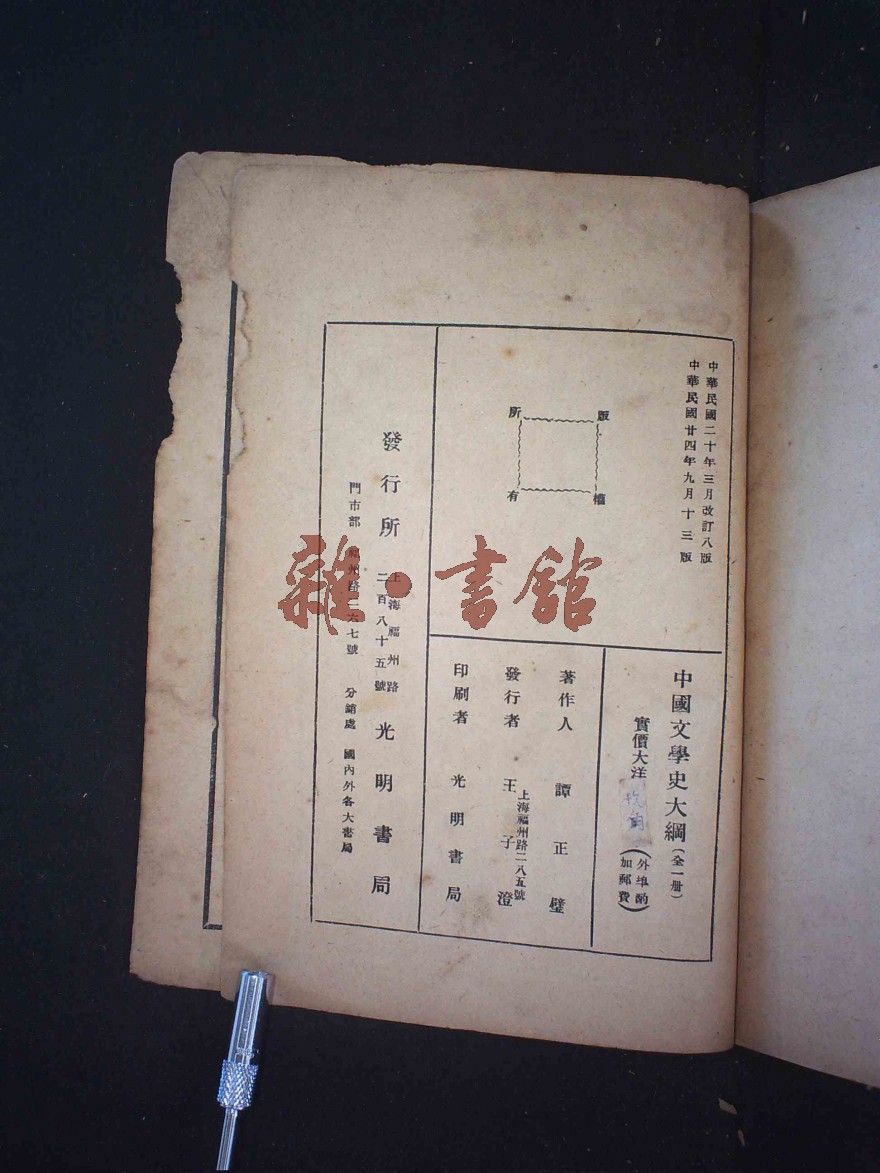 中華民國二十年三月改訂八版
中華民國廿四年九月十三版
版權所有
中國文學史大綱（全一册）
實價大洋
（外埠酌加郵費）
著作人 譚正璧
發行者 王子澄
上海福州路二八五號
印刷者 光明書局
發行所 上海福州路二百八十五號 光明書局
門市部 福州路二六七號 分銷處 國內外各大書局
雜·書館